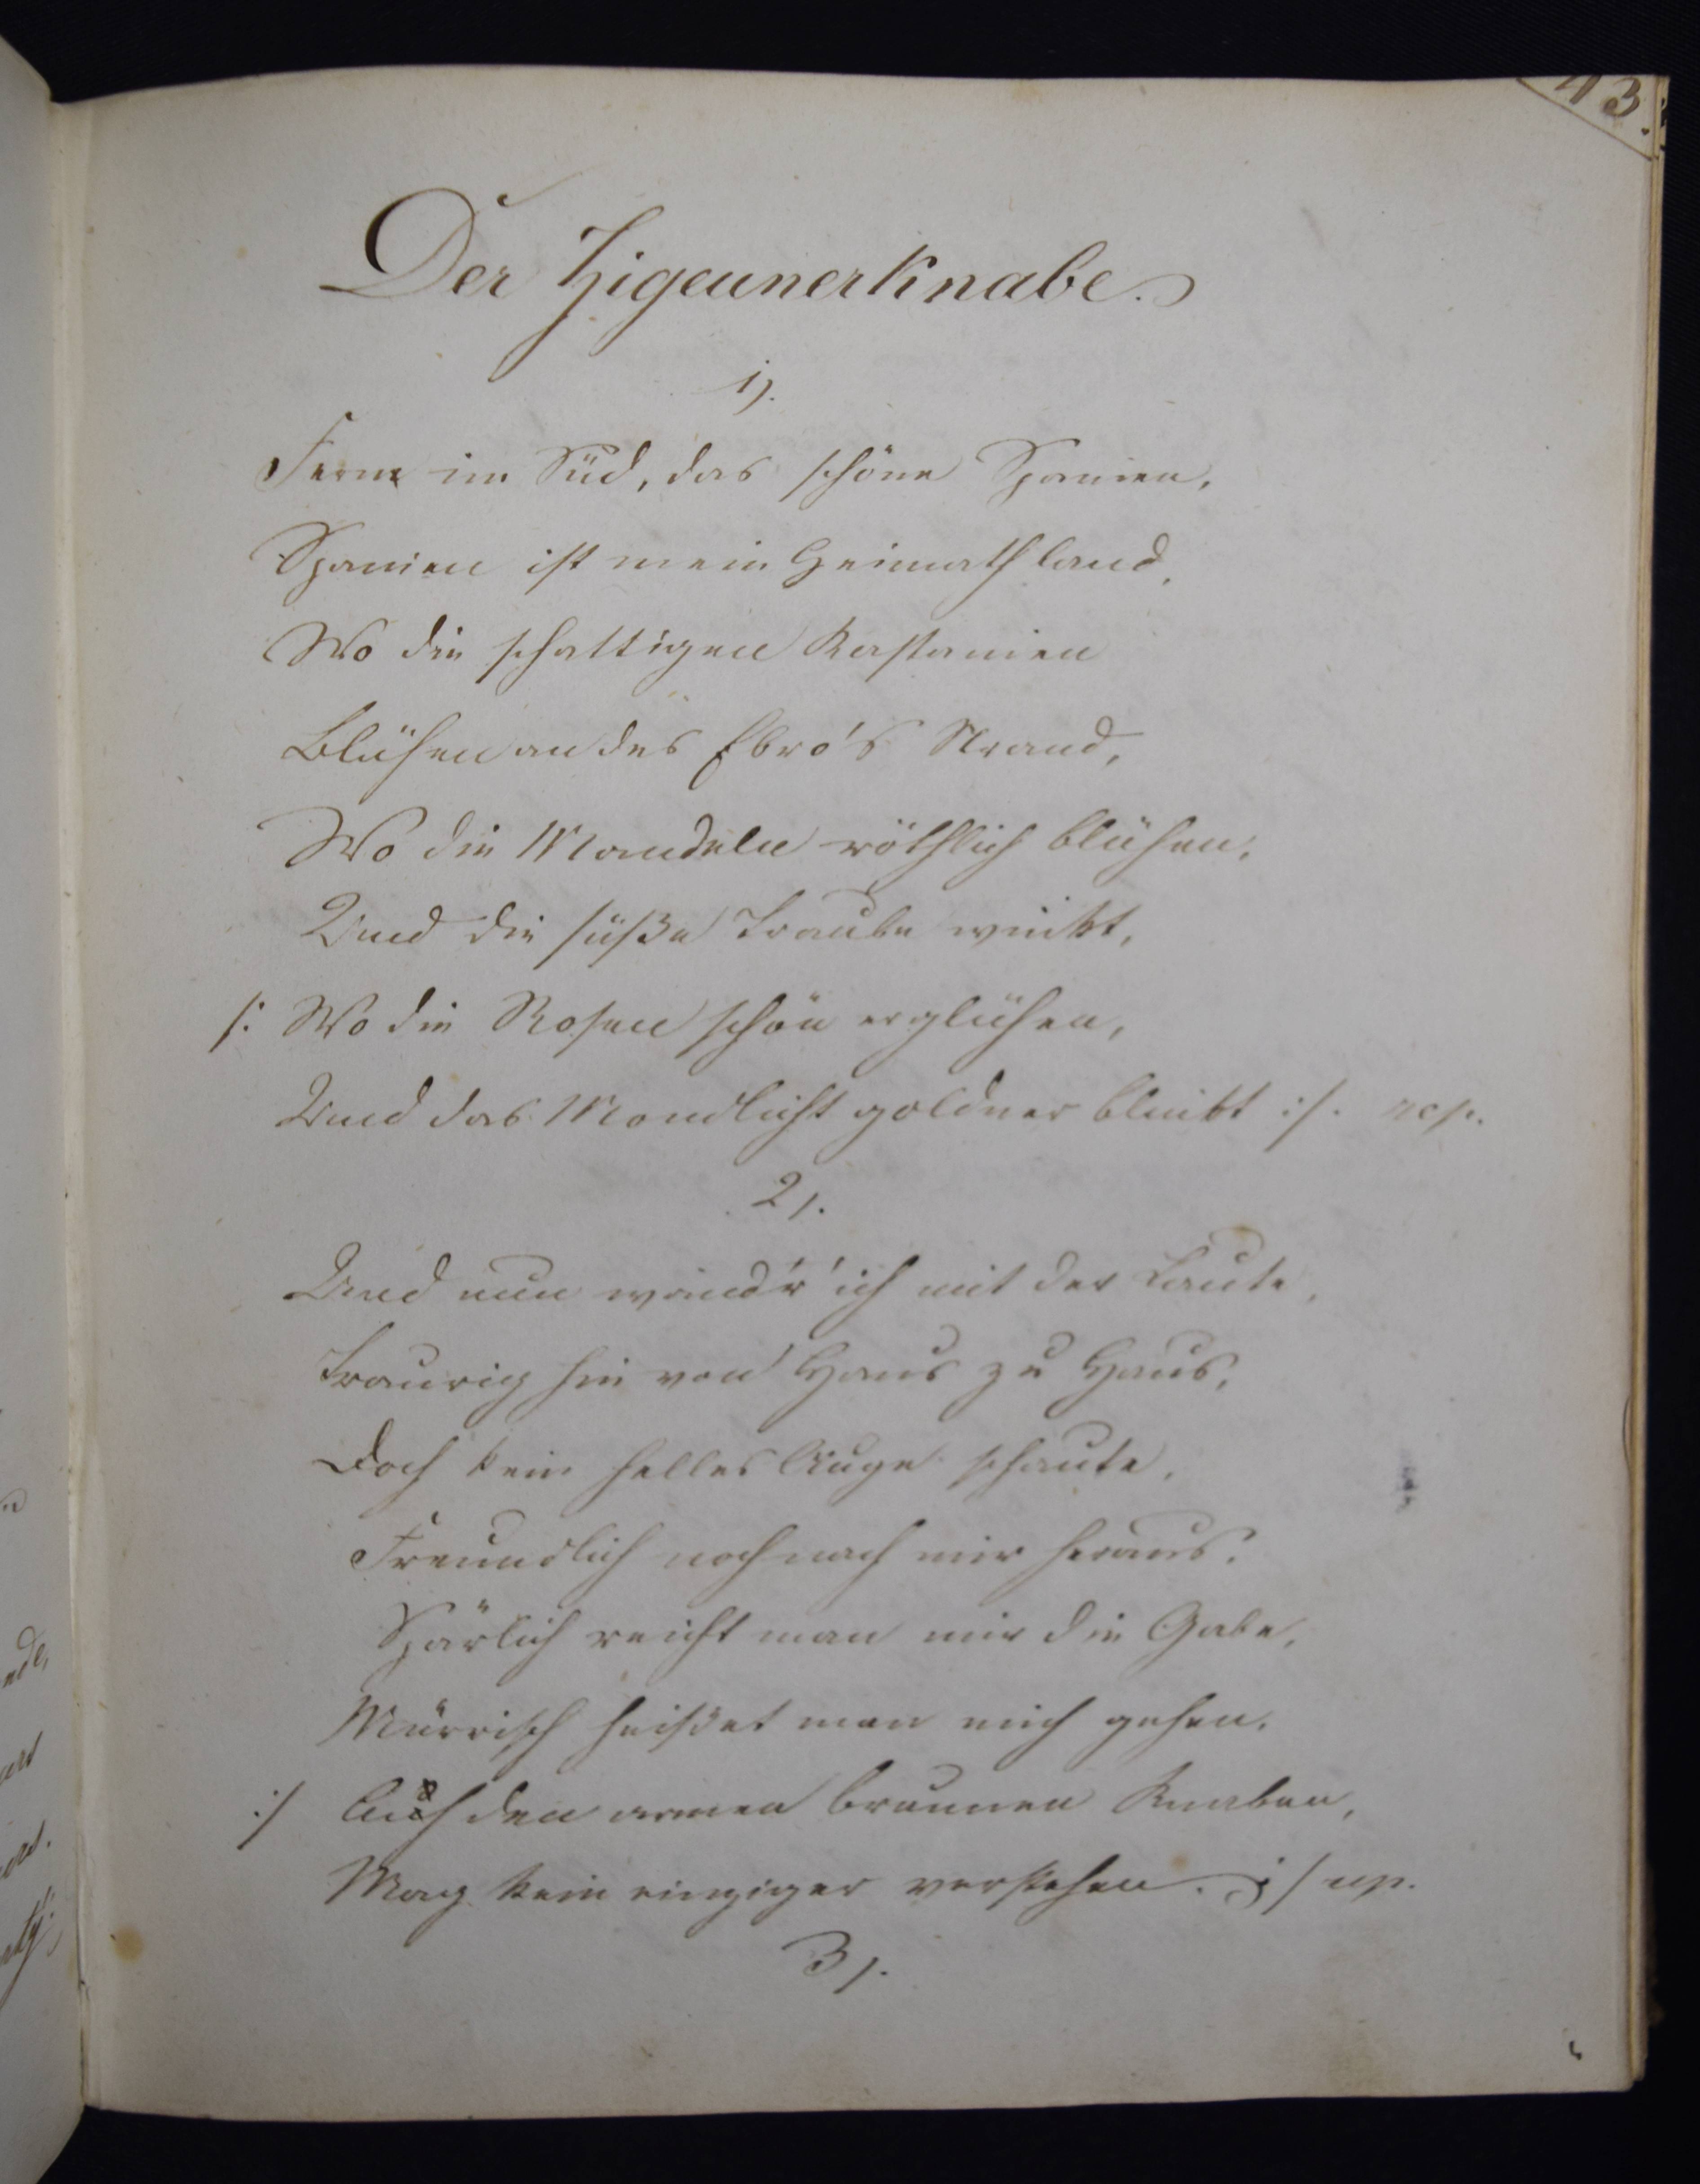 43.
Der Zigeunerknabe.
1).
Ferne im Süd, das schöne Spanien,
Spanien ist mein Heimathland,
Wo die schattigen Kastanien
Blühen an des Ebro's Strand,
Wo die Mandeln röthlich blühen,
Und die süße Traube winkt,
/: Wo die Rosen schön erglühen,
Und das Mondlicht goldner blinkt :/. rep.
2).
Und nun wand'r' ich mit der Laute,
Traurig hin von Haus zu Haus,
Doch kein helles Auge schaute,
Freundlich noch nach mir heraus.
Spärlich reicht man mir die Gabe,
Mürrisch heißet man mich gehen,
:/ Auch den armen braunen Knaben,
Mag kein einziger verstehen. :/ rep.
3).